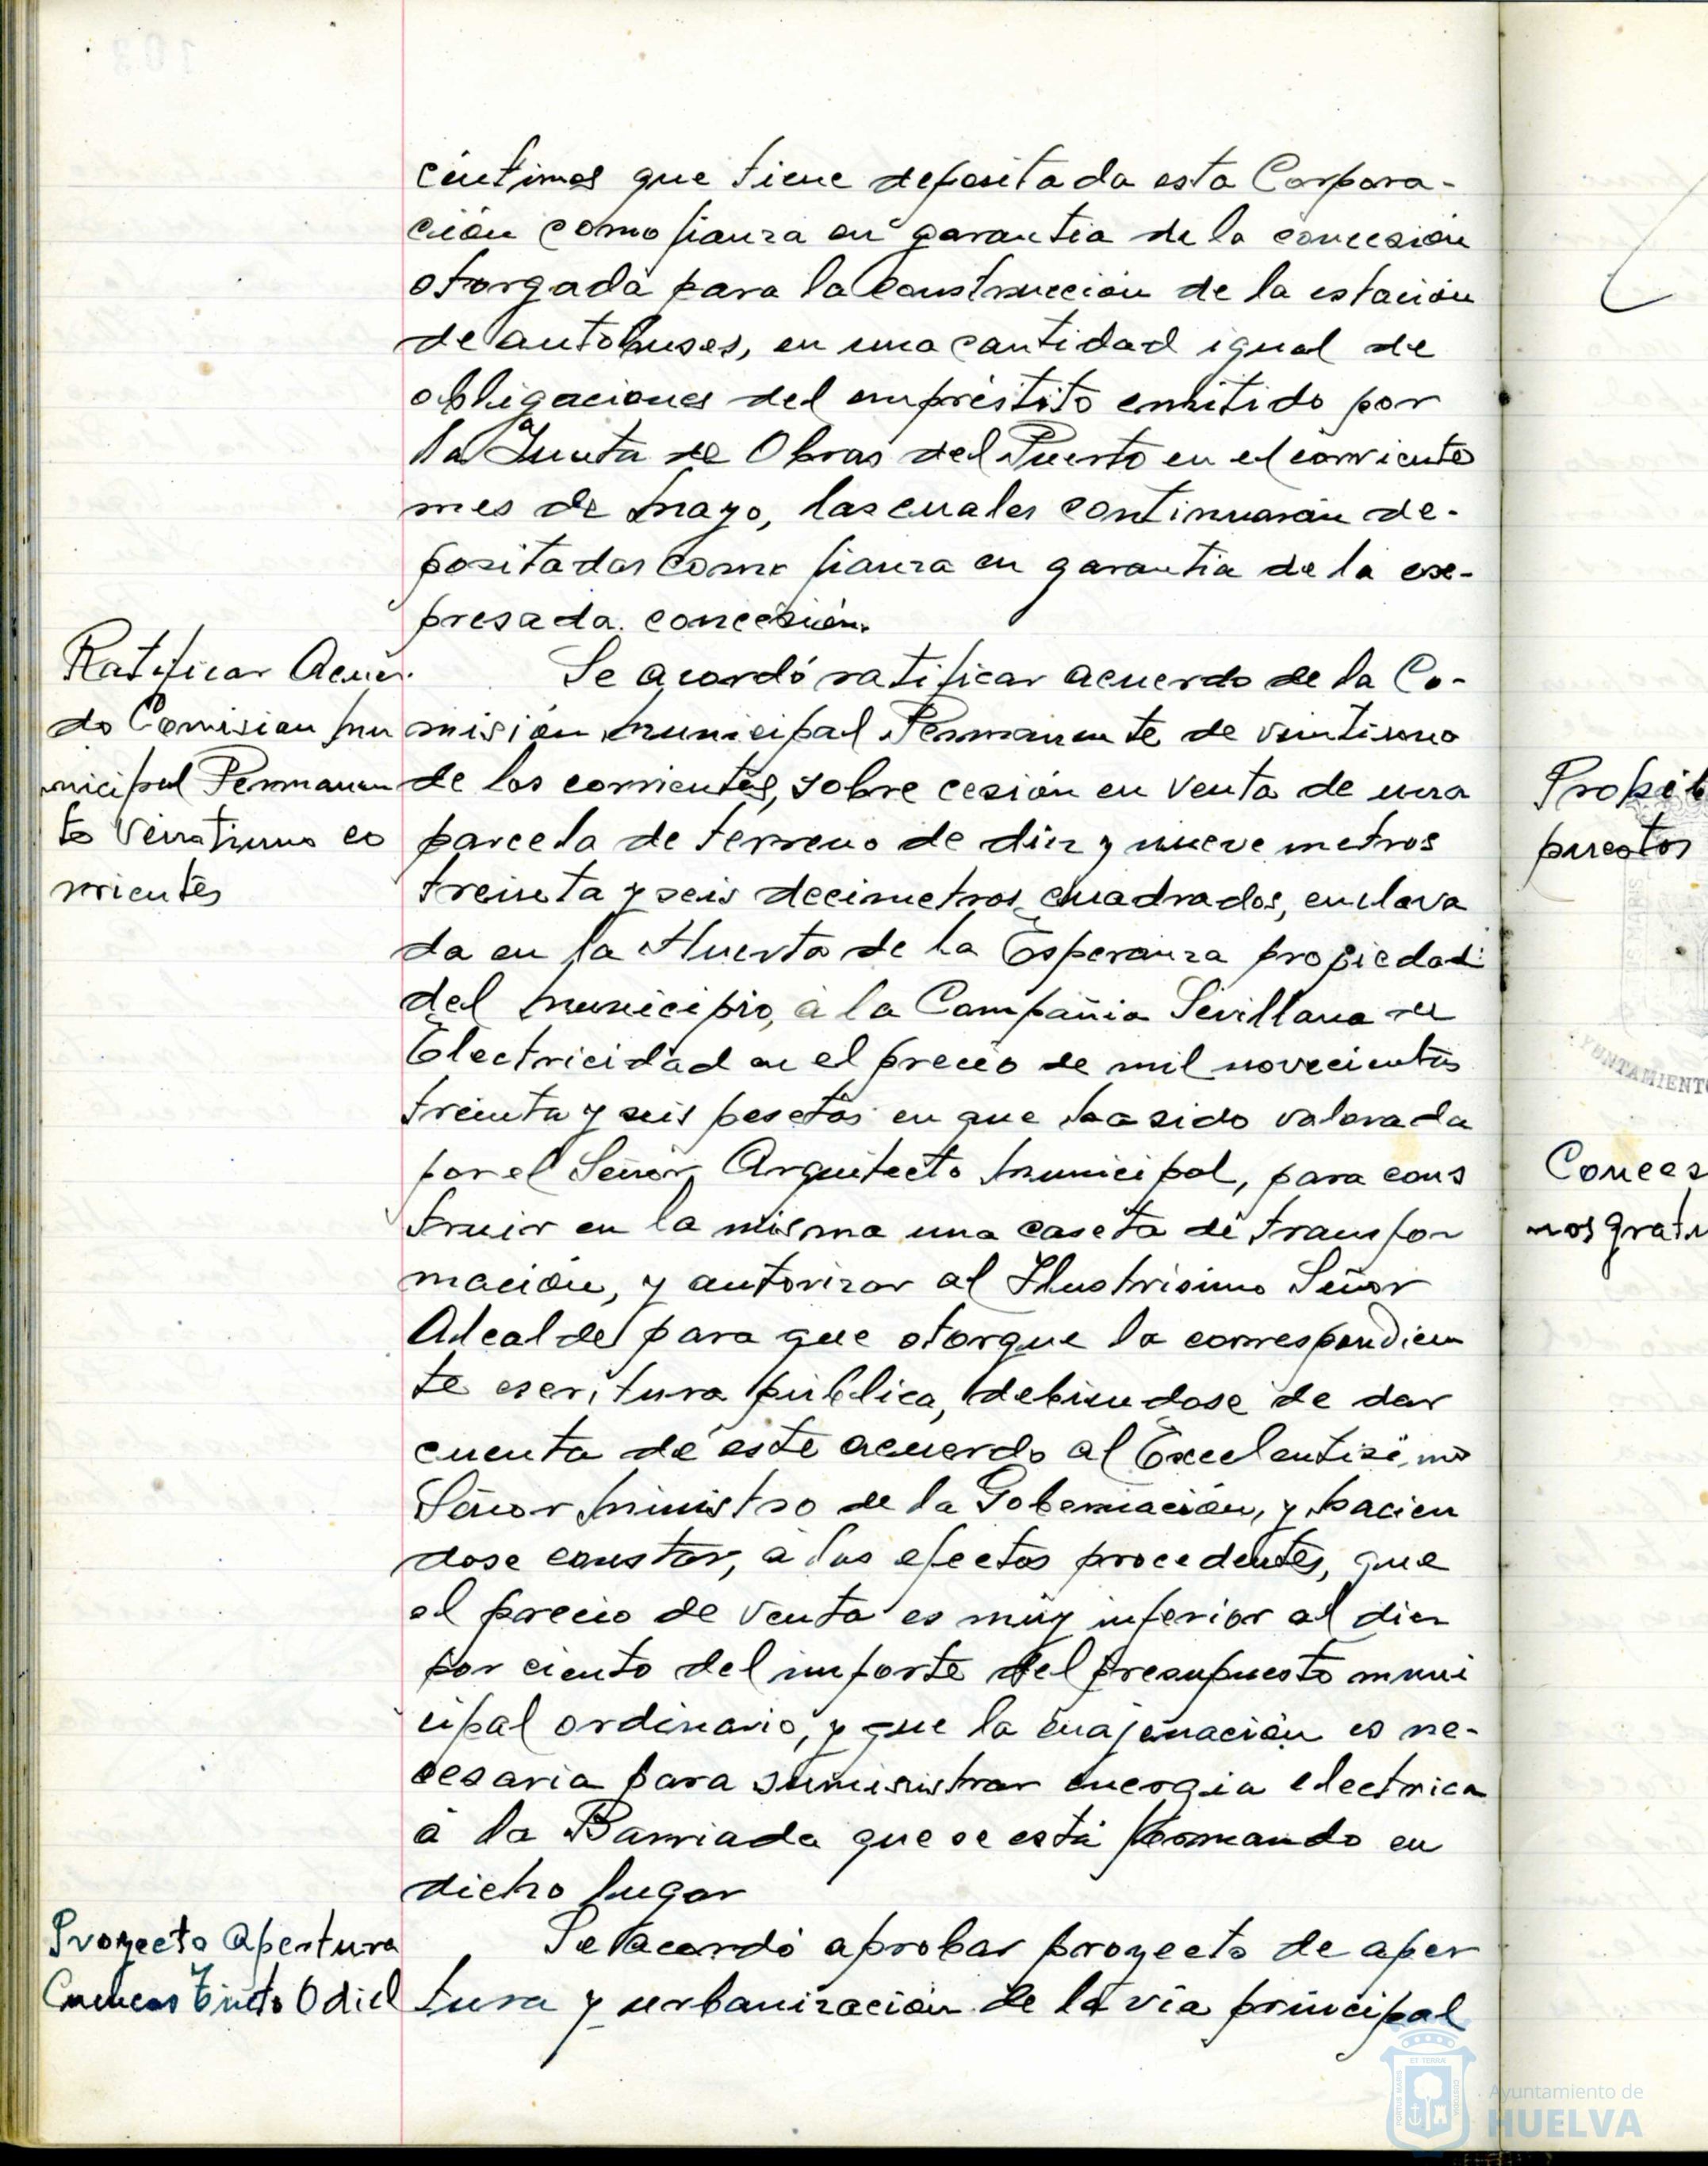 céntimos que tiene depositada esta Corpora-
ción como fianza en garantia de la concesión
otorgada para la construcción de la estación
de autobuses, en una cantidad igual de
obligaciones del empréstito emitido por
la Junta de Obras del Puerto en el corriente
mes de mayo, las cuales continuarán de-
positadas como fianza en garantia de la ex-
presada concesión.
Ratificar Acuer-
do Comision mu
nicipal Permanen
te Veintiuno co
rrientes
Se acordó ratificar acuerdo de la Co-
misión municipal Permanente de veintiuno
de los corrientes, sobre cesión en venta de una
parcela de terreno de diez y nueve metros
treinta y seis decimetros cuadrados, enclava
da en la Huerta de la Esperanza propiedad
del municipio, a la Compañia Sevillana de
Electricidad en el precio de mil novecientas
treinta y seis pesetas en que ha sido valorada
por el Señor Arquitecto municipal, para cons
truir en la misma una caseta de transfor
mación, y autorizar al Ilustrisimo Señor
Alcalde para que otorgue la correspondien
te escritura pública, debiendose de dar
cuenta de este acuerdo al Excelentisimo
Señor ministro de la Gobernación, y hacien
dose constar, a los efectos procedentes, que
el precio de venta es muy inferior al diez
por ciento del importe del presupuesto muni
cipal ordinario, y que la enajenación es ne-
cesaria para suministrar energia electrica
a la Barriada que se está formando en
dicho lugar
Proyecto Apertura
Cuencas Tinto Odiel
Se acordó aprobar proyecto de aper
tura y urbanización de la vía principal
Prohib
puestos
AYUNTAMIENTO
Conces
nos gratu
Ayuntamiento de
HUELVA